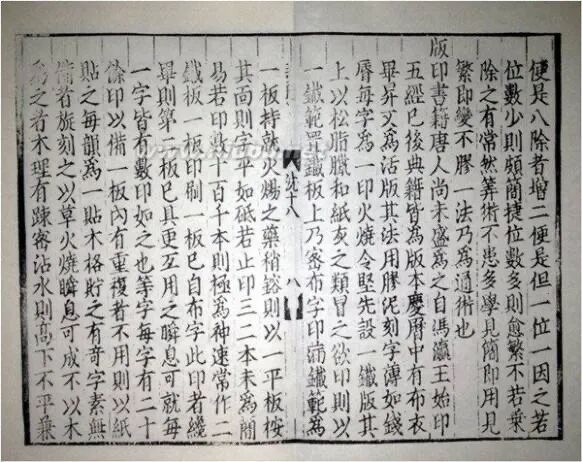 便是八除者增二便是但一位一因之若
位數少則頗簡捷位數多則愈繁不若乗
除之有常然筭術不患多學見簡即用見
繁即變不膠一法乃為通術也
版印書籍唐人尚未盛為之自馮瀛王始印
五經已後典籍皆為版本慶曆中有布衣
畢昇又為活版其法用膠泥刻字薄如錢
脣每字為一印火燒令堅先設一鐵版其
上以松脂臘和紙灰之類冒之欲印則以
一鐵範置鐵板上乃宻布字印滿鐵範為
沈十八
八
一板持就火煬之藥稍鎔則以一平板按
其面則字平如砥若止印三二本未為簡
易若印數十百千本則極為神速常作二
鐵板一板印刷一板已自布字此印者纔
畢則第二板已具更互用之瞬息可就每
一字皆有數印如之也等字每字有二十
餘印以備一板內有重複者不用則以紙
貼之每韻為一貼木格貯之有竒字素無
備者旋刻之以草火燒瞬息可成不以木
為之者木理有踈宻沾水則高下不平兼